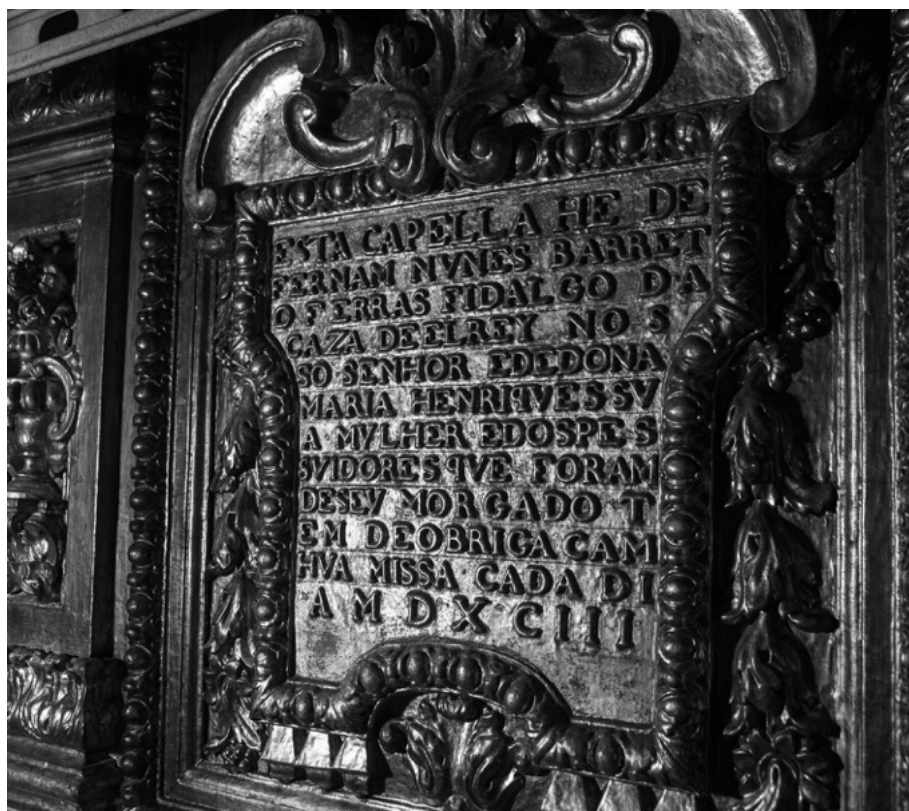 ESTA CAPELLA HE DE
FERNAM NVNES BARRET
O FERRAS FIDALGO D·A
CAZA DE ELREY NO S
SO SENHOR EDEDONA
MARIA HENRIQVES SV
A MVLHER EDOSPES S
SVIDORES QVE FORAM
DESEV MORGADO T
EM DEOBRIGACAM
HVA MISSA CADA DI
A M D X C I I I